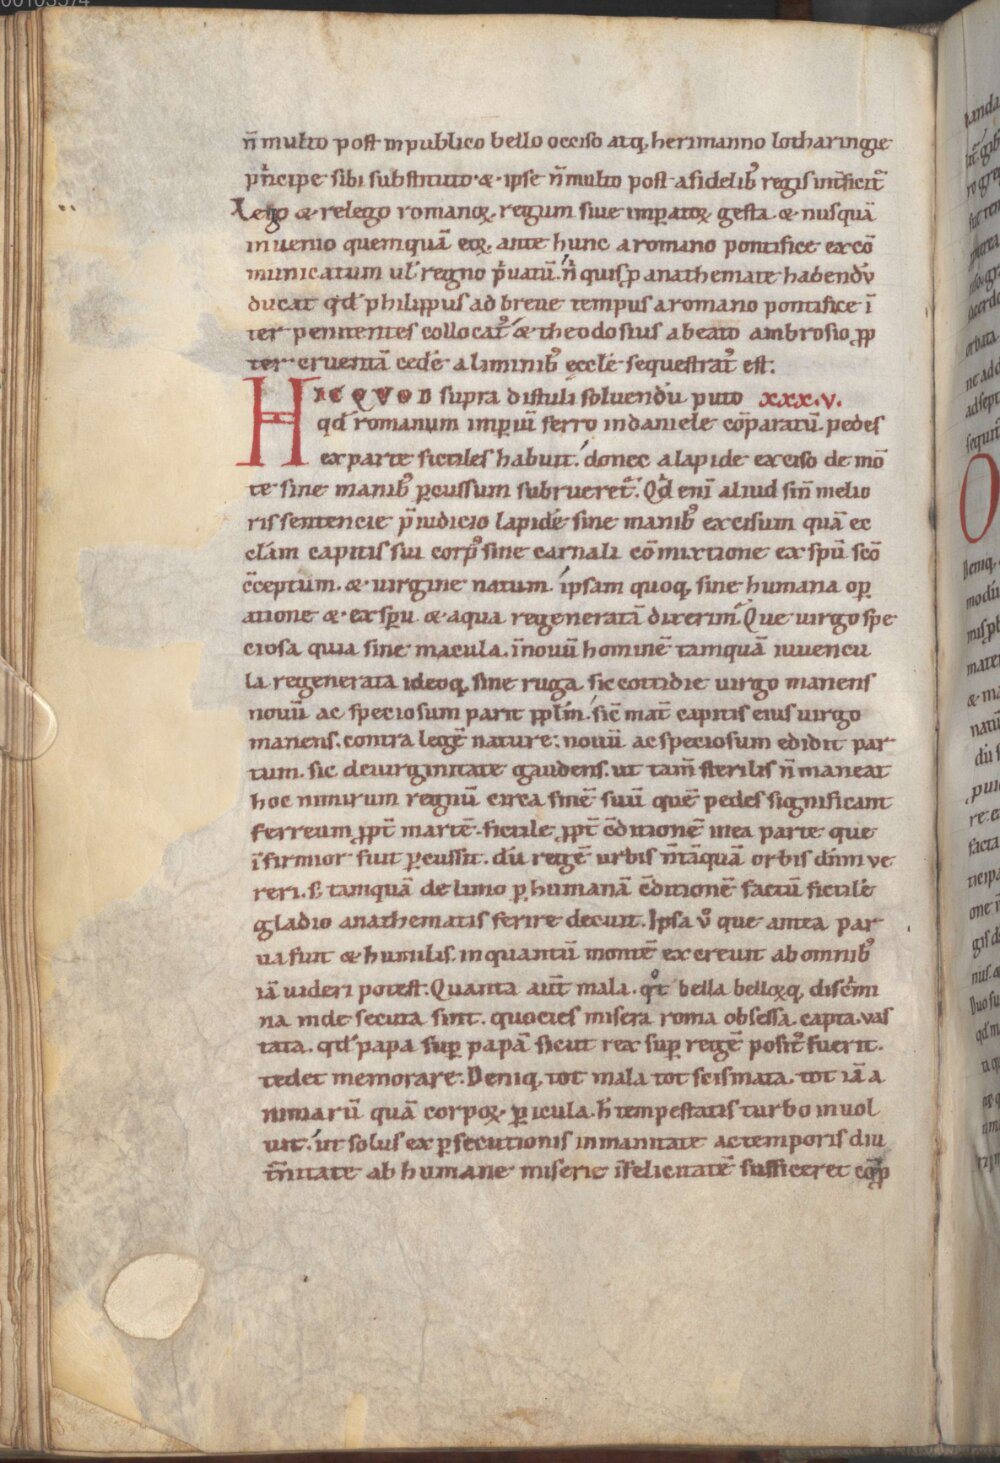 n̄ multo post in publico bello occiso atq; herimanno lotharingie
pͥncipe sibi substituto · & · ipse n̄ multo post a fidelibꝰ regis int̄ficit᷑
Lego & relego romanoꝝ regum siue imꝑatoꝝ gesta & nusquā
inuenio quemquā eoꝝ ante hunc a romano pontifice excō
municatum ul̛ regno pͥuatū. nͥ quis ꝓ anathemate habendū
ducat qd̛ philippus ad breue tempus a romano pontifice ī
ter penitentes collocat᷑ & theodosius a beato ambrosio ꝓp
ter cruentā cedē a liminibꝰ ecclē sequestrat᷑ est.
HIC QVOD supra distuli soluendū puto xxx.v.
qd̛ romanum imperiū ferro in daniele cōparatū. pedes
ex parte fictiles habuit. donec a lapide exciso de mō
te sine manibꝰ ꝑcussum subrueret᷑. Qͥd enī aliud sin̄ melio
ris sentencie p̄iudicio lapidē sine manibꝰ excisum quā ec
cl̄am capitis sui corpꝰ sine carnali cōmixtione ex sp̄u sc̄o
c̄ceptum. & uirgine natum. ipsam quoq; sine humana oꝑ
atione & ex sp̄u & aqua regeneratā dixerim. Que uirgo spe
ciosa quia sine macula. in nouū hominē tamquā iuuencu
la regenerata ideoq; sine ruga. sic cottidie uirgo manens
nouū ac speciosum parit ppl̄m. sic̄ mat̄ capitis eius uirgo
manens. contra legē nature. nouū ac speciosum edidit par
tum. sic de uirginitate gaudens. ut tam̄ sterilis n̄ maneat
hoc nimirum regnū circa finē suū quē pedes significant
ferreum ꝓpt̄ martē. fictile ꝓpt̄ c̄ditionē in ea parte que
īfirmior fuit ꝑcussit. dū regē urbis n̄ tāquā orbis dn̄m ue
reri. s; tamquā de limo ꝑ humanā c̄ditionē factū fictilē
gladio anathematis ferire decuit. Ipsa ů que antea par
ua fuit & humilis. in quantū montē excreuit ab omnibꝰ
iā uideri potest. Quanta aut̄ mala. qͦt bella belloꝝq; discͥmi
na inde secuta sint. quocies misera roma obsessa. capta. uas
tata. qd̛ papa suꝑ papā sicut rex suꝑ regē positꝰ fuerit.
tedet memorare. Deniq; tot mala tot scismata. tot tā a
nimarū quā corpoꝝ ꝑicula. h̛ tempestatis turbo inuol
uit. ut solus ex ꝑsecutionis inmanitate ac temporis diu
t̄nitate ab humane miserie īfelicitatē sufficeret